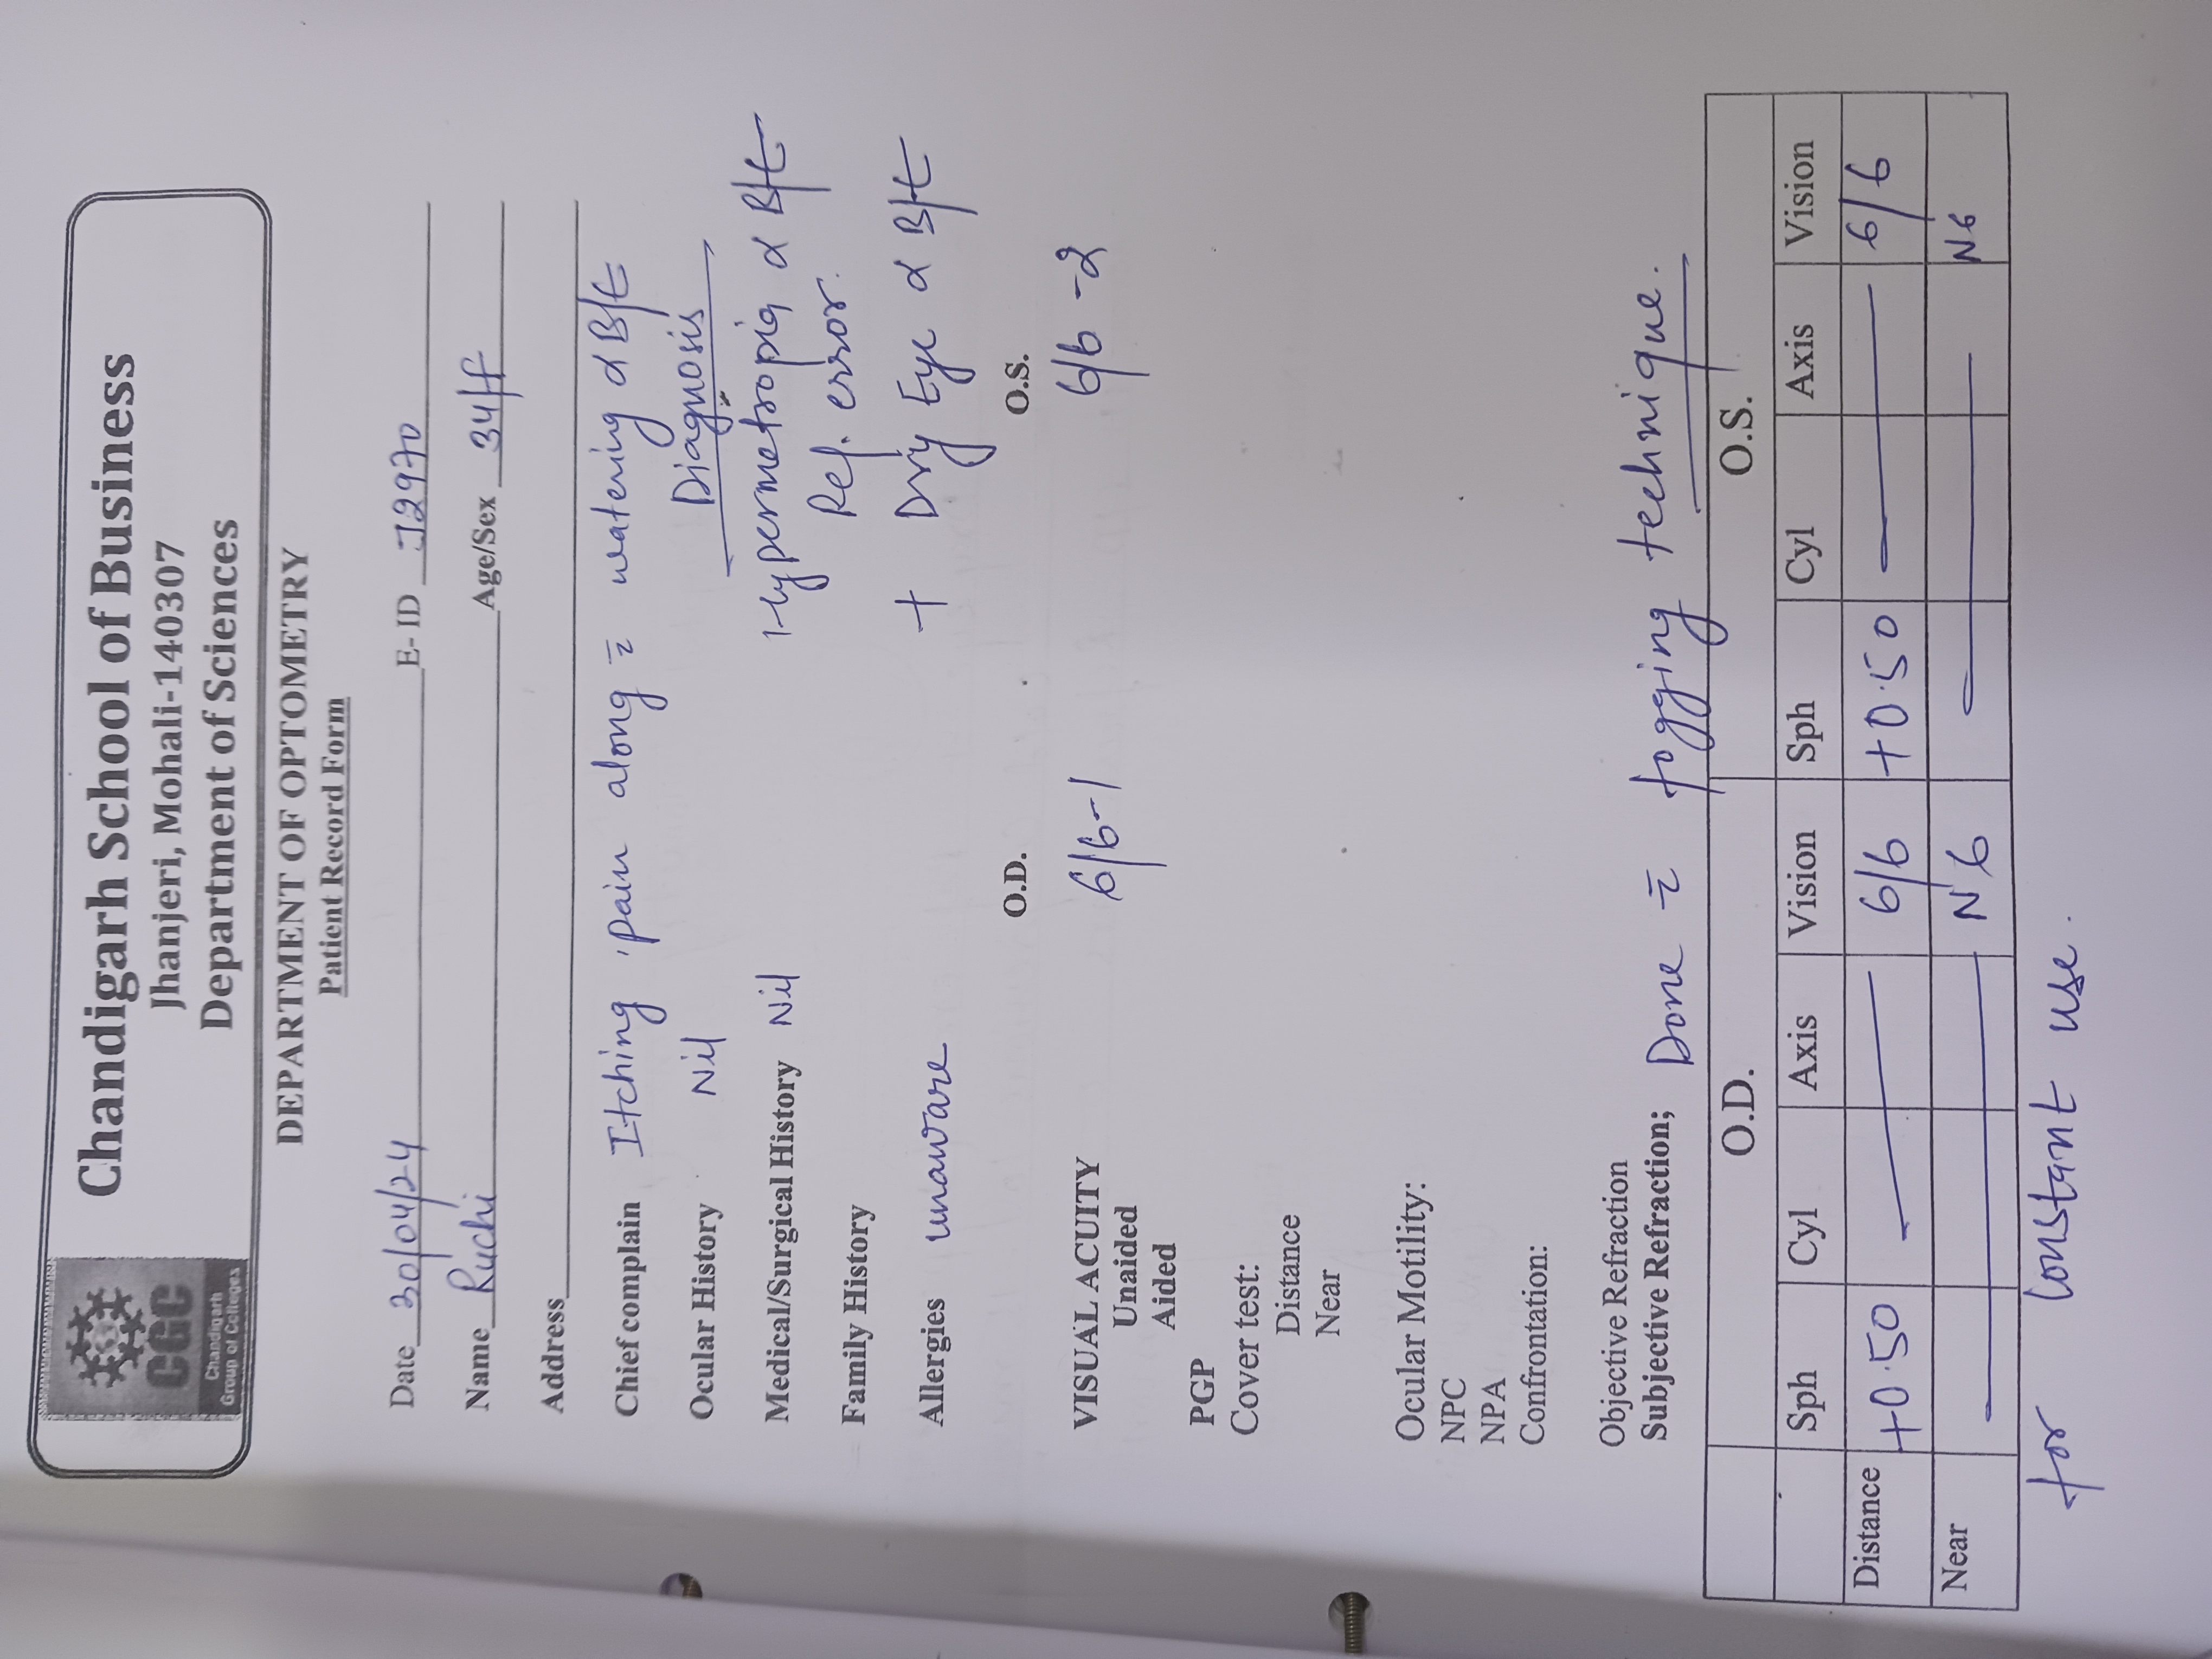 CGC
Chandigarh
Group of Colleges
Chandigarh School of Business
Jhanjeri, Mohali-140307
Department of Sciences
DEPARTMENT OF OPTOMETRY
Patient Record Form
Date 30/04/24 E- ID J2970
Name Ruchi Age/Sex 34/F
Address
Chief complain Itching, pain along c̄ watering α B/E
Ocular History Nil Diagnosis
Medical/Surgical History Nil Hypermetropia α B/E
Ref. error.
Family History
Allergies unaware + Dry Eye α B/E
O.D. O.S.
VISUAL ACUITY 6/6-1 6/6 -2
Unaided
Aided
PGP
Cover test:
Distance
Near
Ocular Motility:
NPC
NPA
Confrontation:
Objective Refraction
Subjective Refraction; Done c̄ fogging technique.
O.D. O.S.
Sph Cyl Axis Vision Sph Cyl Axis Vision
Distance +0.50 — 6/6 +0.50 — 6/6
Near — N6 — N6
for constant use.